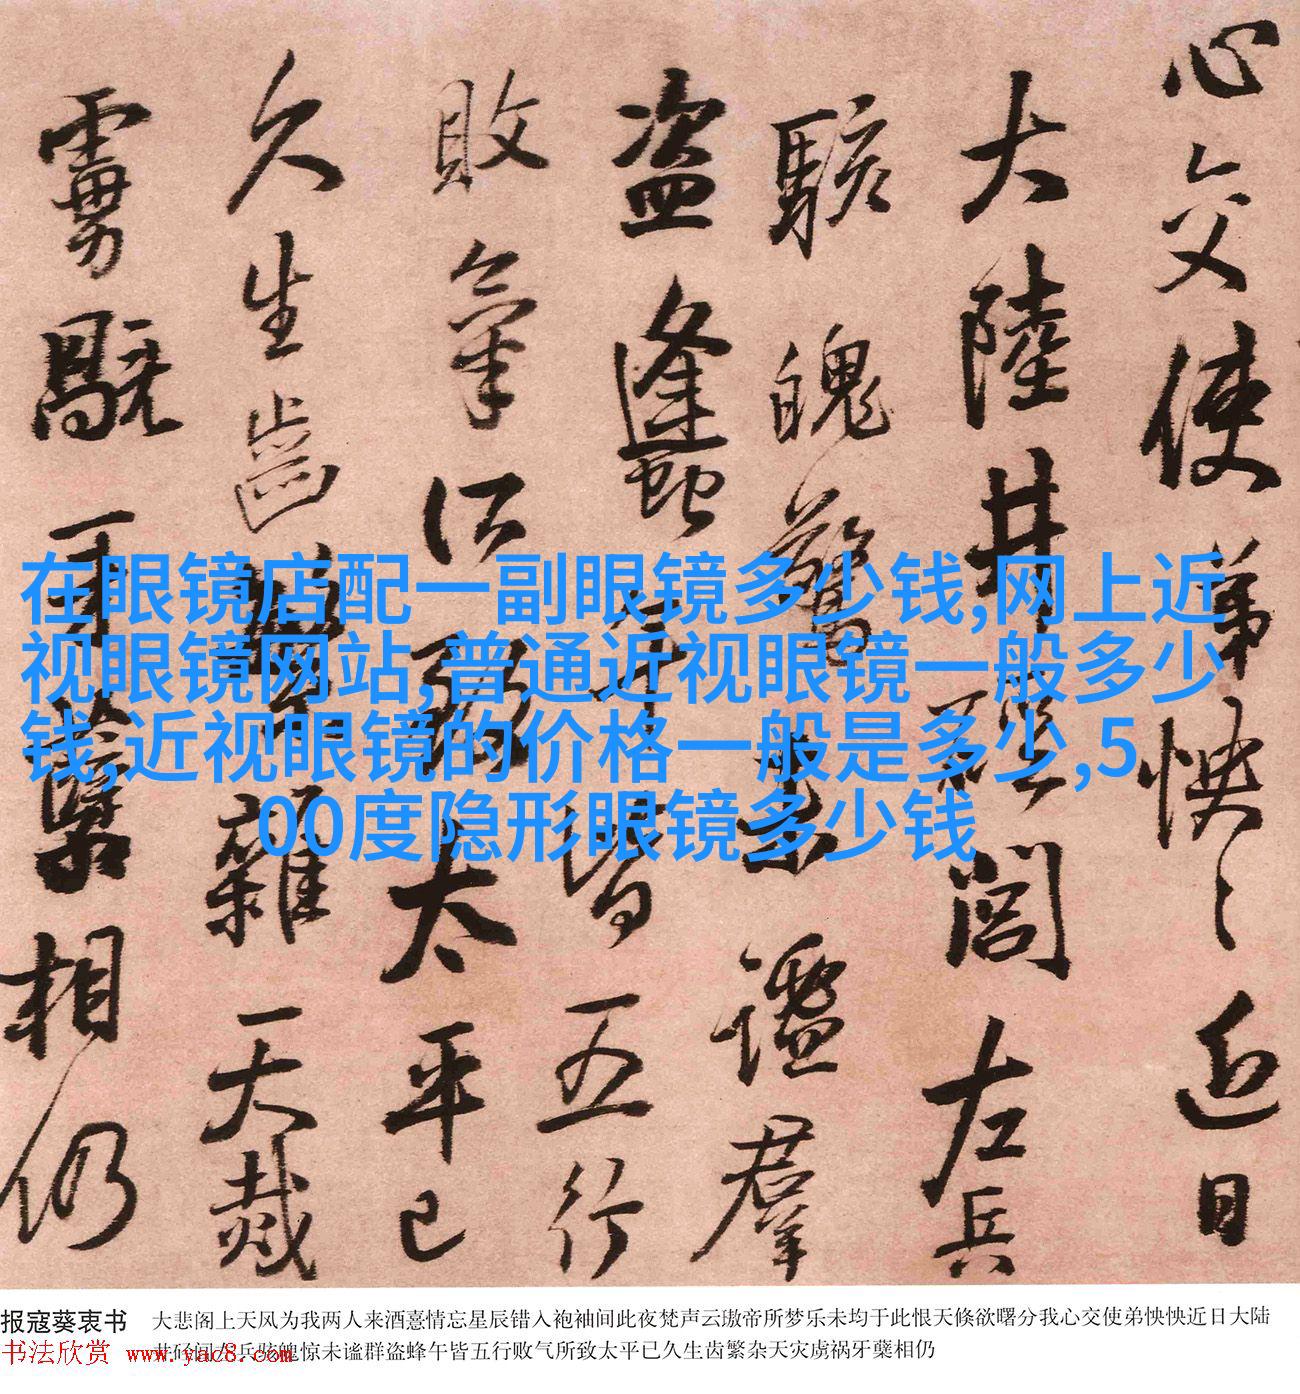 心交使弟怏〻近日
大陸井閤左兵
駭魄驚未謐羣
盗蠭午皆五行
敗氣所致太平已
久生齒繁雜天烖
虜牙蘖相仍
在眼镜店配一副眼镜多少钱,网上近
视眼镜网站,普通近视眼镜一般多少
钱,近视眼镜的价格一般是多少,5
00度隐形眼镜多少钱
报寇葵衷书
大悲阁上天风为我两人来酒憙情忘星辰错入袍袖间此夜梵声云璈帝所梦乐未均于此恨天倏欲曙分我心交使弟怏怏近日大陆
井阁左兵骇魄惊未谧群盗蜂午皆五行败气所致太平已久生齿繁杂天灾虏祸牙蘖相仍
书法欣赏 www.yac8.com